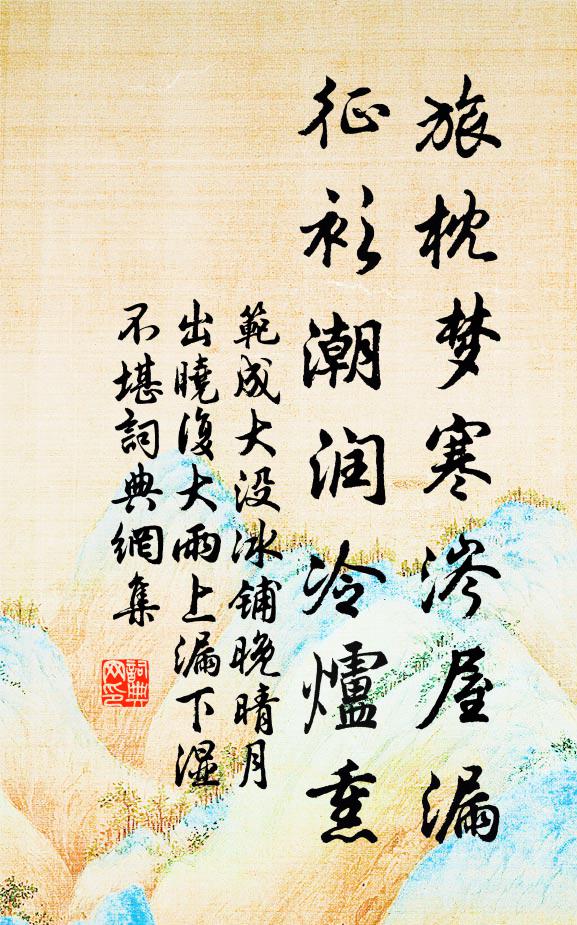 旅枕梦寒涔屋漏
征衫潮润冷爐熏
範成大没冰铺晚晴月
出曉復大雨上漏下湿
不堪詞典網集
詞典网印